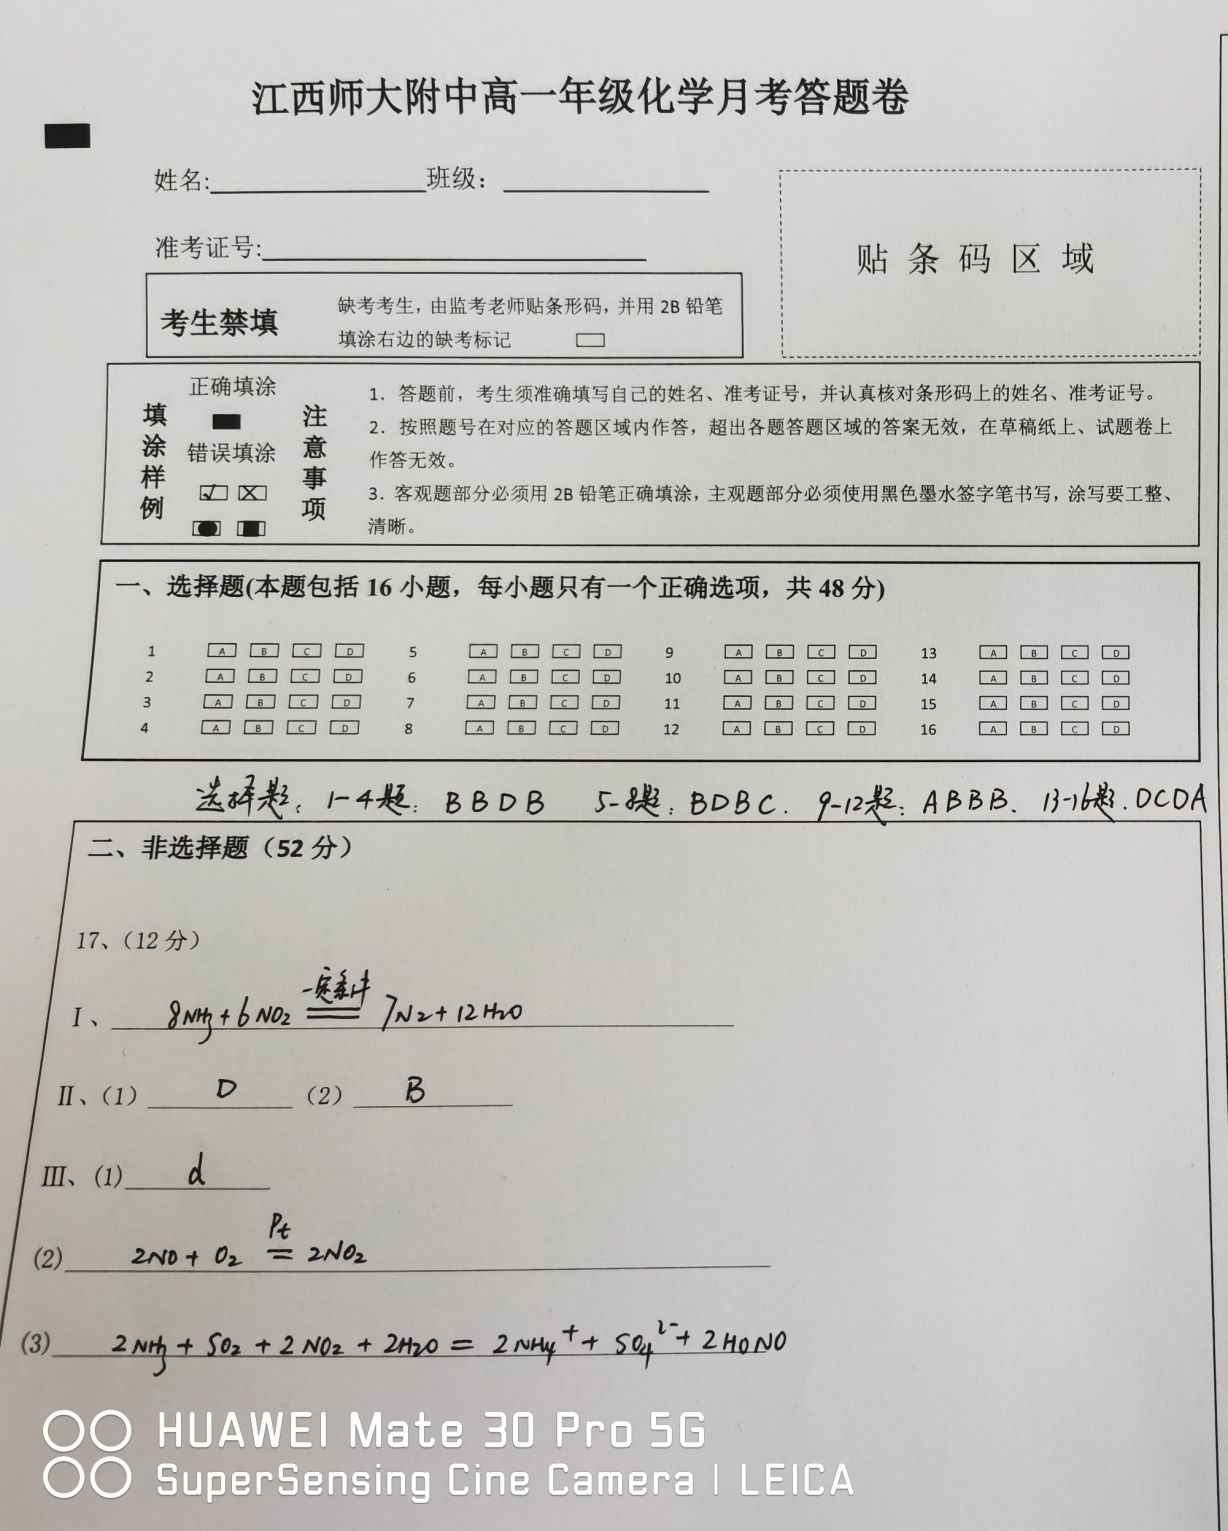 江西师大附中高一年级化学月考答题卷
姓名:
班级：
准考证号:
贴 条 码 区 域
考生禁填
缺考考生，由监考老师贴条形码，并用 2B 铅笔
填涂右边的缺考标记
填涂样例
正确填涂
错误填涂
注意事项
1．答题前，考生须准确填写自己的姓名、准考证号，并认真核对条形码上的姓名、准考证号。
2．按照题号在对应的答题区域内作答，超出各题答题区域的答案无效，在草稿纸上、试题卷上
作答无效。
3．客观题部分必须用 2B 铅笔正确填涂，主观题部分必须使用黑色墨水签字笔书写，涂写要工整、
清晰。
一、选择题(本题包括 16 小题，每小题只有一个正确选项，共 48 分)
1 A B C D 5 A B C D 9 A B C D 13 A B C D
2 A B C D 6 A B C D 10 A B C D 14 A B C D
3 A B C D 7 A B C D 11 A B C D 15 A B C D
4 A B C D 8 A B C D 12 A B C D 16 A B C D
选择题：1-4题：BBDB 5-8题：BDBC. 9-12题：ABBB. 13-16题.DCDA
二、非选择题（52 分）
17、（12 分）
Ⅰ、 8NH₃+6NO₂ 一定条件 == 7N₂+12H₂O
Ⅱ、（1） D （2） B
Ⅲ、(1) d
(2) 2NO+O₂ Pt = 2NO₂
(3) 2NH₃+SO₂+2NO₂+2H₂O = 2NH₄⁺+SO₄²⁻+2HONO
HUAWEI Mate 30 Pro 5G
SuperSensing Cine Camera | LEICA